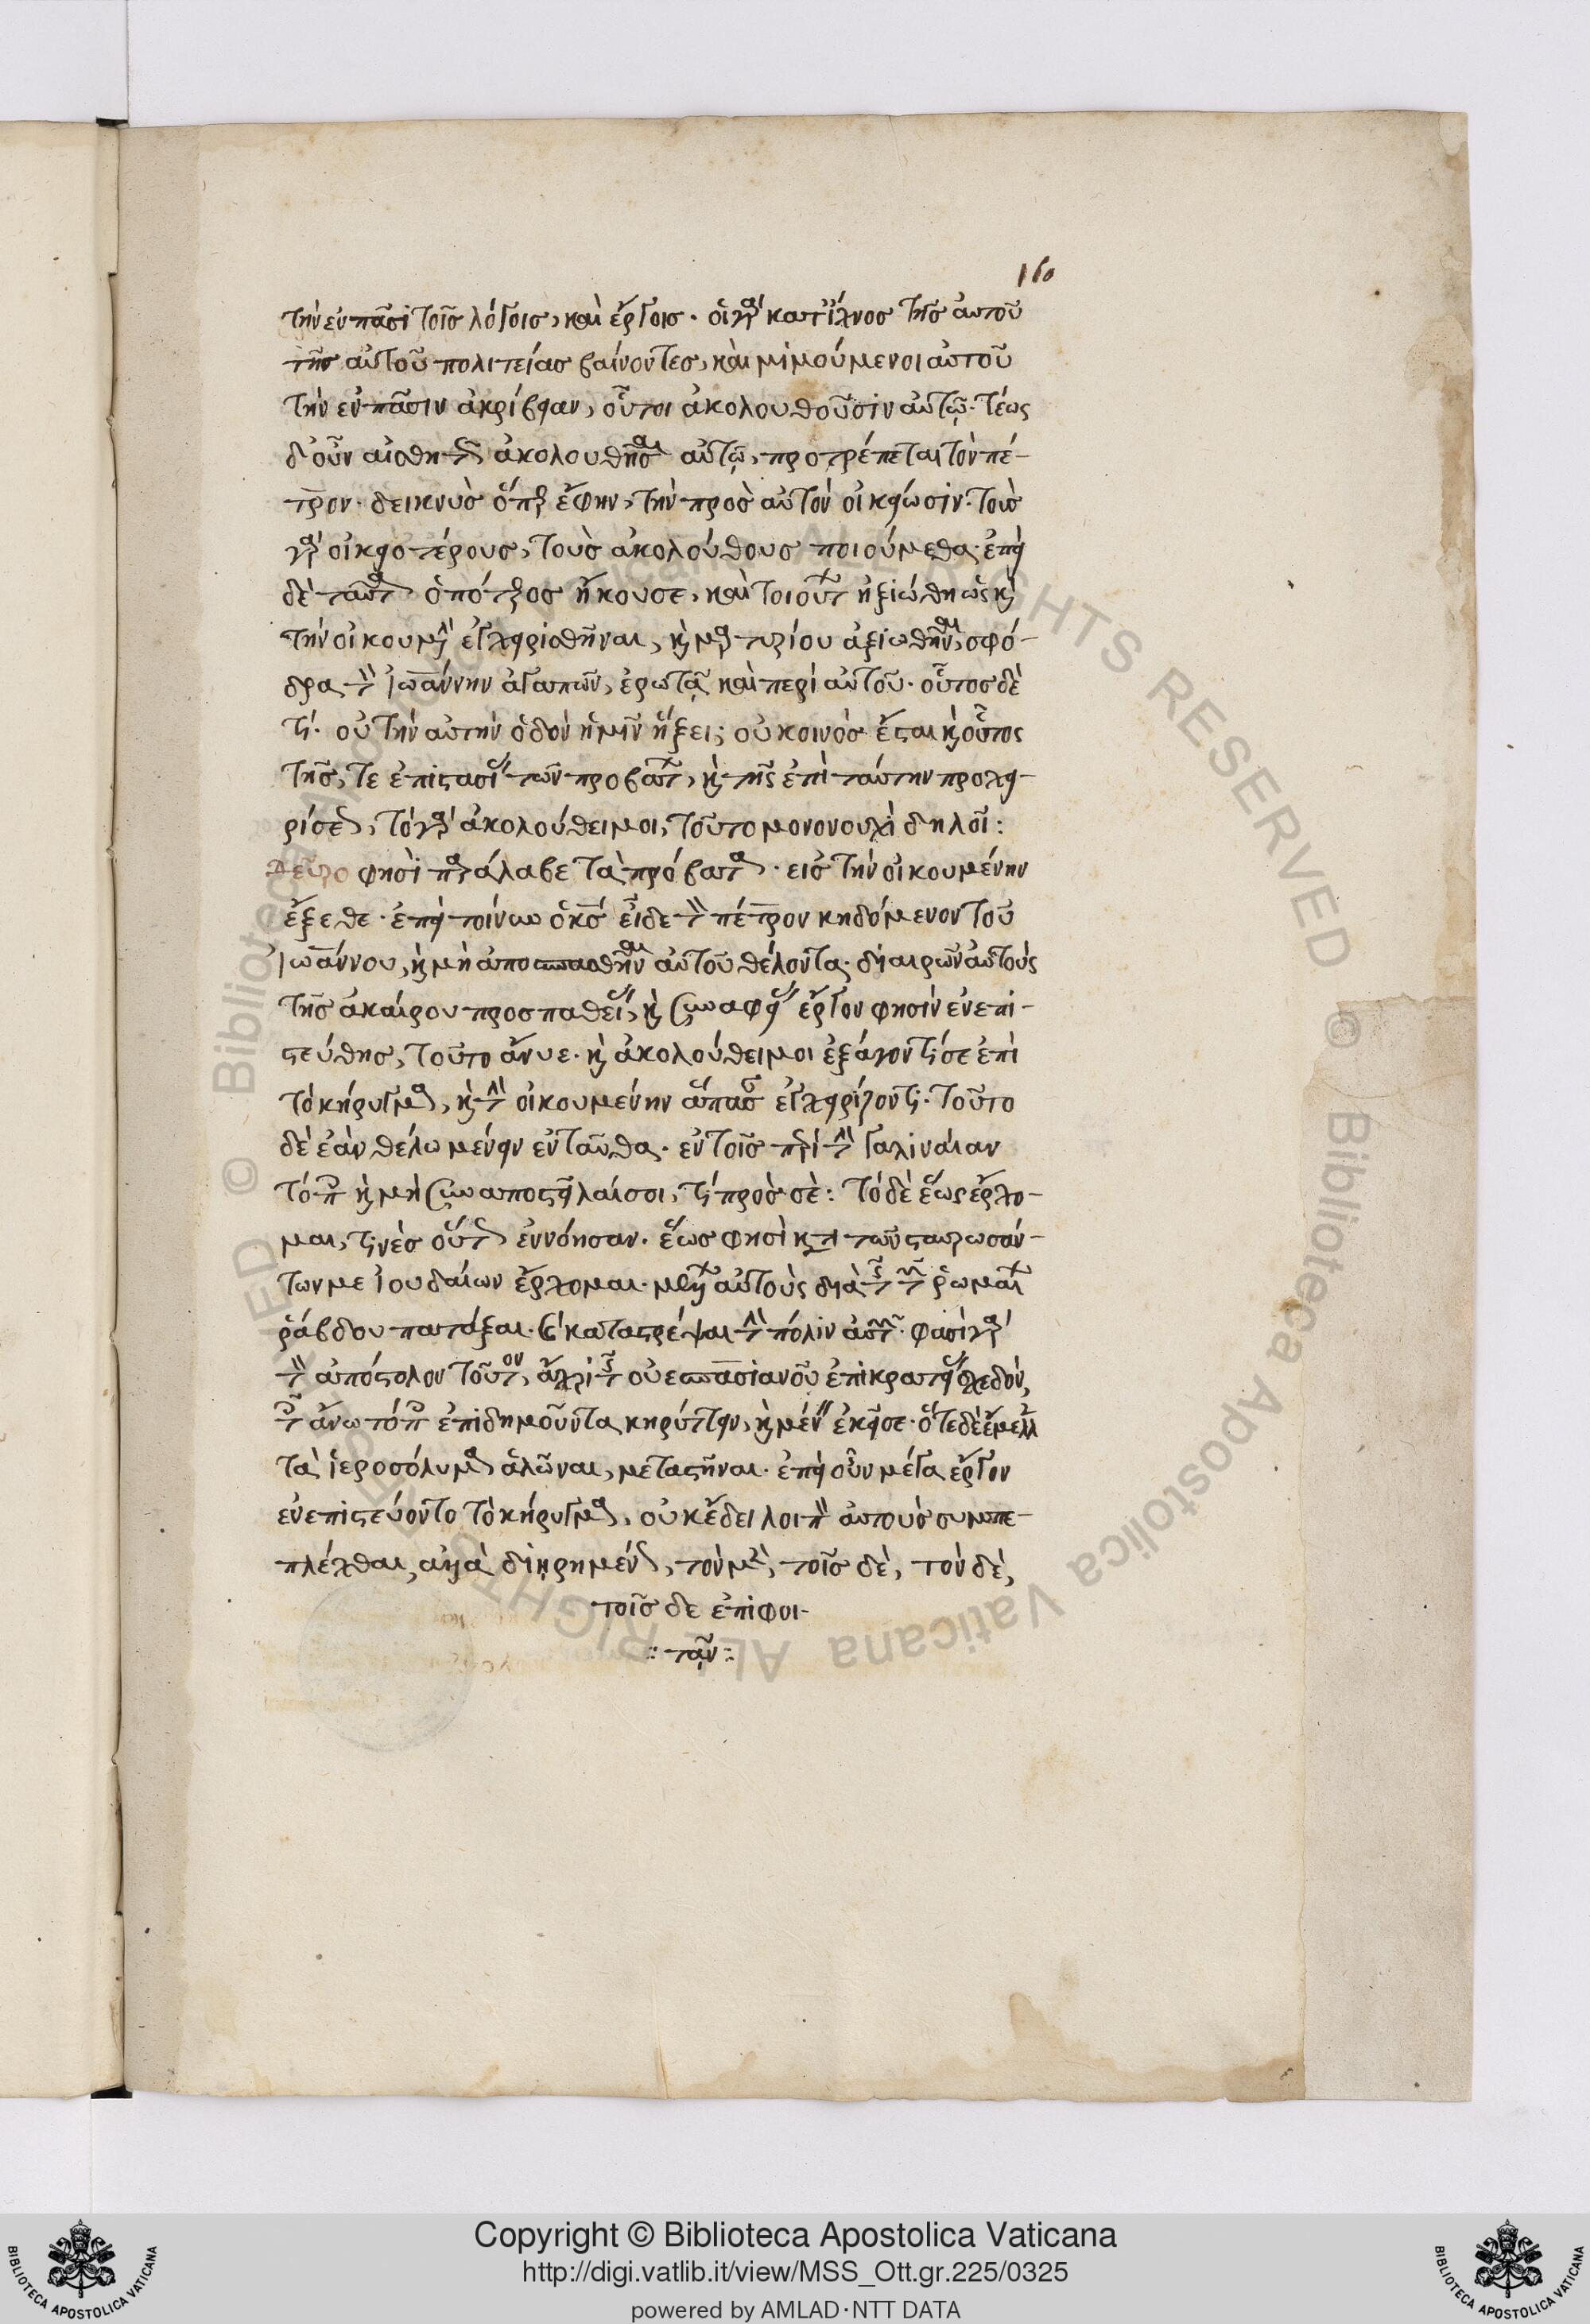 160
τὴν ἐν πᾶσι τοῖς λόγοις, καὶ ἔργοις. οἱ γὰρ κατ' ἴχνος τῆς αὐτοῦ
τῆς αὐτοῦ πολιτείας βαίνοντες, καὶ μιμούμενοι αὐτοῦ
τὴν ἐν πᾶσιν ἀκρίβειαν, οὗτοι ἀκολουθοῦσιν αὐτῷ. τέως
δ' οὖν αἰσθητῶς ἀκολουθῆσαι αὐτῷ, προτρέπεται τὸν πέ-
τρον. δεικνὺς ὅπερ ἔφην, τὴν πρὸς αὐτὸν οἰκείωσιν. τοὺς
γὰρ οἰκειοτέρους, τοὺς ἀκολούθους ποιούμεθα. ἐπεὶ
δὲ ταῦτα ὁ πέτρος ἤκουσε, καὶ τοιούτων ἠξιώθη ὡς καὶ
τὴν οἰκουμένην ἐγχειρισθῆναι, καὶ μαρτυρίου ἀξιωθῆναι, σφό-
δρα τὸν ἰωάννην ἀγαπῶν, ἐρωτᾷ καὶ περὶ αὐτοῦ. οὗτος δὲ
τί. οὐ τὴν αὐτὴν ὁδὸν ἡμῖν ἥξει; οὐ κοινὸς ἔσται καὶ οὗτος
τῆς, τε ἐπιστασίας τῶν προβάτων, καὶ τῆς ἐπὶ ταύτην προχει-
ρίσεως, τὸ γὰρ ἀκολούθει μοι, τοῦτο μονονουχὶ δηλοῖ:
Δεῦρο φησὶ παράλαβε τὰ πρόβατα. εἰς τὴν οἰκουμένην
ἔξελθε. ἐπεὶ τοίνυν ὁ κς εἶδε τὸν πέτρον κηδόμενον τοῦ
ἰωάννου, καὶ μὴ ἀποσπασθῆναι αὐτοῦ θέλοντα. διαιρῶν αὐτοὺς
τῆς ἀκαίρου προσπαθείας, καὶ συναφείας ἔργον φησὶν ἐνεπι-
στεύθης, τοῦτο ἄνυε. καὶ ἀκολούθει μοι ἐξάγοντί σε ἐπὶ
τὸ κήρυγμα, καὶ τὴν οἰκουμένην ἅπασαν ἐγχειρίζοντι. τοῦτο
δὲ ἐὰν θέλω μένειν ἐνταῦθα. ἐν τοῖς περὶ τὴν γαλιλαίαν
τόποις καὶ μὴ συναποστεῖλαί σοι, τί πρὸς σὲ: τὸ δὲ ἕως ἔρχο-
μαι, τινὲς οὕτως ἐννόησαν. ἕως φησὶ κατὰ τῶν σταυρωσάν-
των με ἰουδαίων ἔρχομαι. μέλλων αὐτοὺς διὰ τῆς τῶν ῥωμαίων
ῥάβδου πατάξαι. καὶ καταστρέψαι τὴν πόλιν αὐτῶν. φασὶ γὰρ
τὸν ἀπόστολον τοῦτον, ἄχρι τῆς οὐεσπασιανοῦ ἐπικρατείας σχεδόν,
τοῖς ἄνω τόποις ἐπιδημοῦντα κηρύττειν, καὶ μένειν ἐκεῖσε. ὅτε δὲ ἔμελλε
τὰ ἱεροσόλυμα ἁλῶναι, μεταστῆναι. ἐπεὶ οὖν μέγα ἔργον
ἐνεπιστεύοντο τὸ κήρυγμα, οὐκ ἔδει λοιπὸν αὐτοὺς συμπε-
πλέχθαι, ἀλλὰ διῃρημένως, τὸν μὲν, τοῖς δὲ, τὸν δὲ,
τοῖς δε ἐπιφοι-
:: τᾷν ::
© Biblioteca Apostolica Vaticana ALL RIGHTS RESERVED © Biblioteca Apostolica Vaticana ALL RIGHTS RESERVED
Copyright © Biblioteca Apostolica Vaticana
http://digi.vatlib.it/view/MSS_Ott.gr.225/0325
powered by AMLAD·NTT DATA
BIBLIOTECA APOSTOLICA VATICANA
BIBLIOTECA APOSTOLICA VATICANA